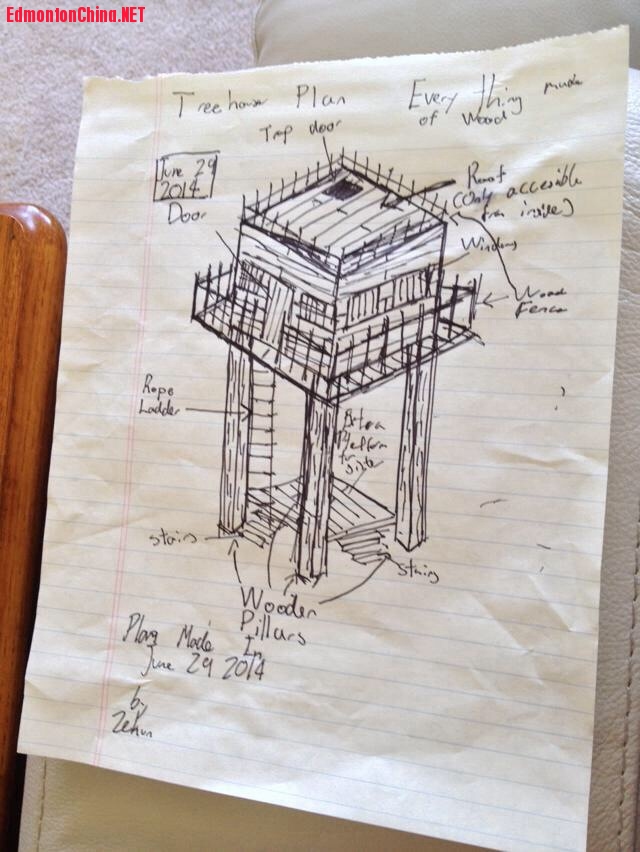 EdmontonChina.NET
Treehouse Plan
Every thing made
of wood
Trap door
June 29
2014
Door
Roof
(Only accesible
from inside)
Windows
Wood
Fence
Rope
Ladder
for
sister
stairs
Stairs
Wooden
Pillars
Plan Made In
June 29 2014
by
Zekun